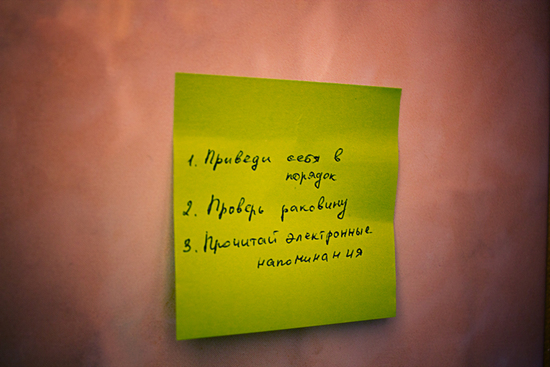 1. Приведи себя в
порядок
2. Проверь раковину
3. Прочитай электронные
напоминания